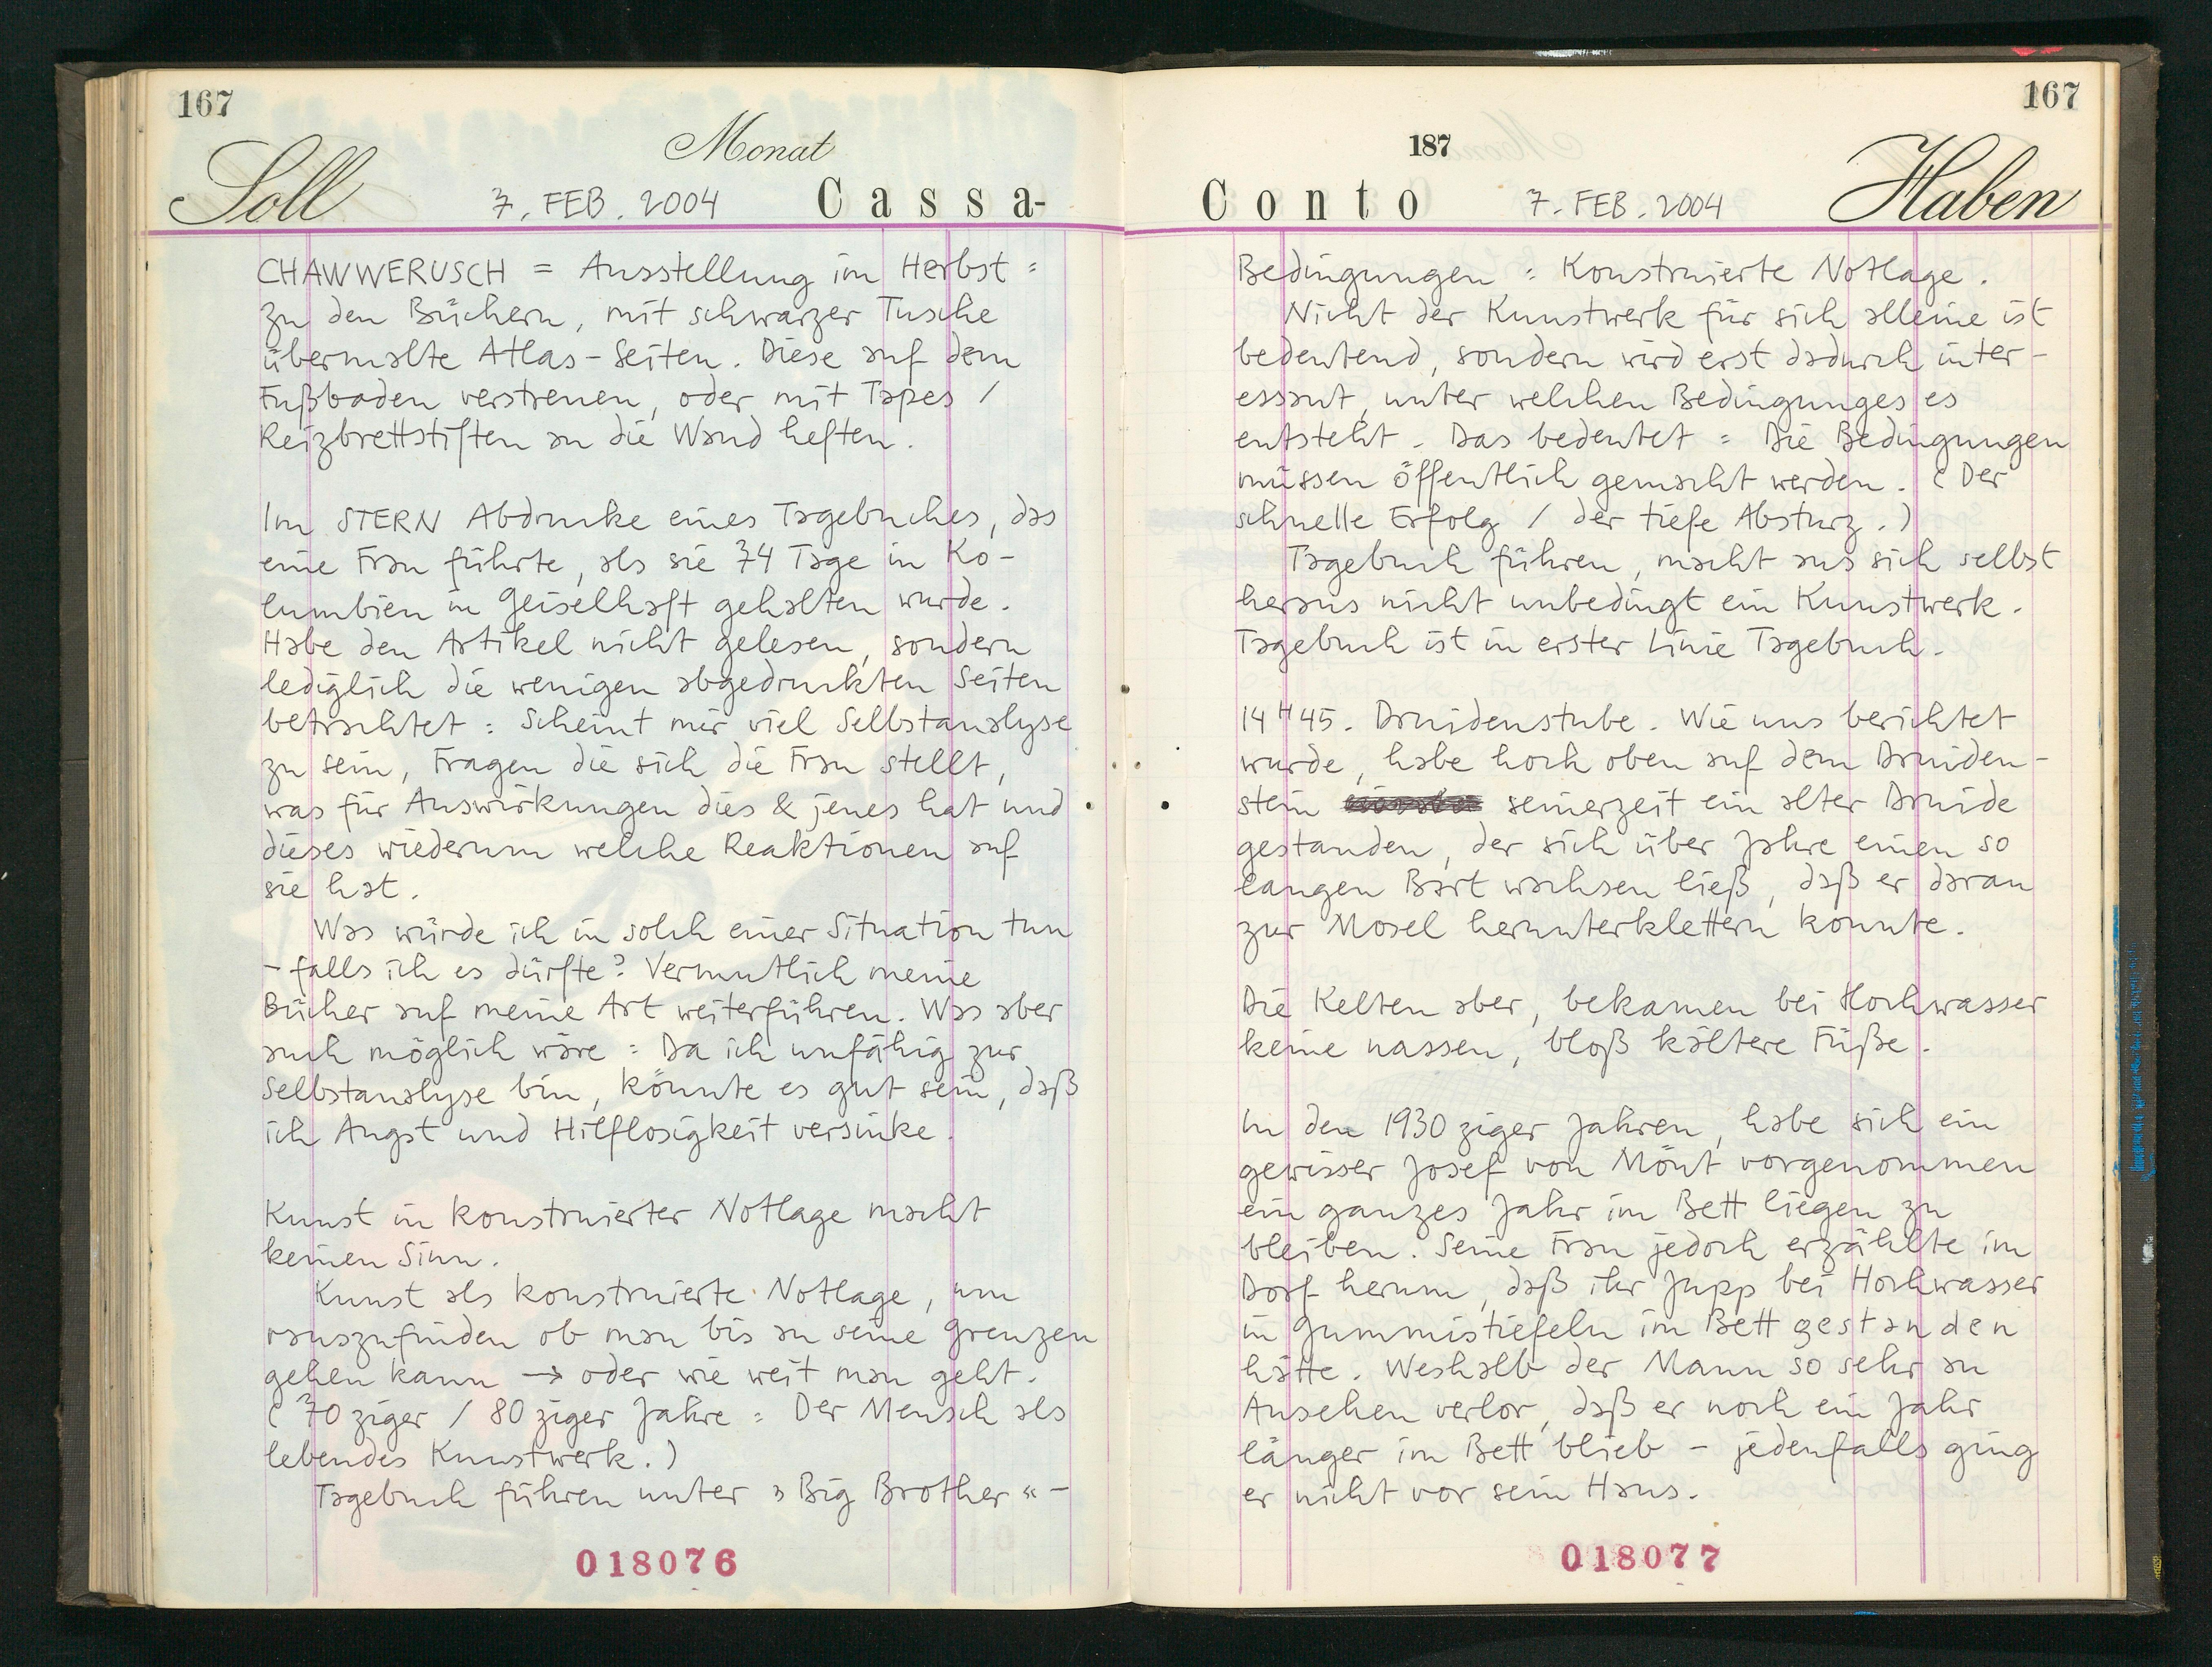 167
Monat
Soll 7. FEB. 2004 Cassa-
CHAWWERUSCH = Ausstellung im Herbst :
zu den Büchern, mit schwarzer Tusche
übermalte Atlas-Seiten. Diese auf dem
Fußboden verstreuen, oder mit Tapes /
Reizbrettstiften an die Wand heften.
Im STERN Abdrucke eines Tagebuches, das
eine Frau führte, als sie 74 Tage in Ko-
lumbien in Geiselhaft gehalten wurde.
Habe den Artikel nicht gelesen, sondern
lediglich die wenigen abgedruckten Seiten
betrachtet : Scheint mir viel Selbstanalyse
zu sein, Fragen die sich die Frau stellt,
was für Auswirkungen dies & jenes hat und
dieses wiederum welche Reaktionen auf
sie hat.
Was würde ich in solch einer Situation tun
- falls ich es dürfte? Vermutlich meine
Bücher auf meine Art weiterführen. Was aber
auch möglich wäre : Da ich unfähig zur
Selbstanalyse bin, könnte es gut sein, daß
ich Angst und Hilflosigkeit versinke.
Kunst in konstruierter Notlage macht
keinen Sinn.
Kunst als konstruierte Notlage, um
rauszufinden ob man bis an seine Grenzen
gehen kann → oder wie weit man geht.
(70ziger / 80ziger Jahre : Der Mensch als
lebendes Kunstwerk.)
Tagebuch führen unter »Big Brother« -
018076
167
187
Conto 7. FEB. 2004 Haben
Bedingungen : Konstruierte Notlage.
Nicht der Kunstwerk für sich alleine ist
bedeutend, sondern wird erst dadurch inter-
essant, unter welchen Bedingunges es
entsteht. Das bedeutet : Die Bedingungen
müssen öffentlich gemacht werden. (Der
schnelle Erfolg / der tiefe Absturz.)
Tagebuch führen, macht aus sich selbst
heraus nicht unbedingt ein Kunstwerk.
Tagebuch ist in erster Linie Tagebuch.
14H45. Druidenstube. Wie uns berichtet
wurde, habe hoch oben auf dem Druiden-
stein seinerzeit ein alter Druide
gestanden, der sich über Jahre einen so
langen Bart wachsen ließ, daß er daran
zur Mosel herunterklettern konnte.
Die Kelten aber, bekamen bei Hochwasser
keine nassen, bloß kältere Füße.
In den 1930ziger Jahren, habe sich ein
gewisser Josef von Mönt vorgenommen
ein ganzes Jahr im Bett liegen zu
bleiben. Seine Frau jedoch erzählte im
Dorf herum, daß ihr Jupp bei Hochwasser
in Gummistiefeln im Bett gestanden
hätte. Weshalb der Mann so sehr an
Ansehen verlor, daß er noch ein Jahr
länger im Bett blieb - jedenfalls ging
er nicht vor sein Haus.
018077